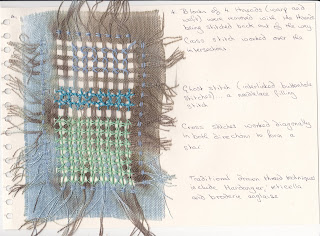 4. Blocks of 4 threads (warp and
weft) were removed with the threads
being stitched back out of the way
Cross stitch worked over the
intersections
Ghost stitch (interlinked buttonhole
stitches) - a needlelace filling
stitch
Cross stitches worked diagonally
in both directions to form a
star
Traditional drawn thread techniques
include Hardanger, reticella
and broderie anglaise